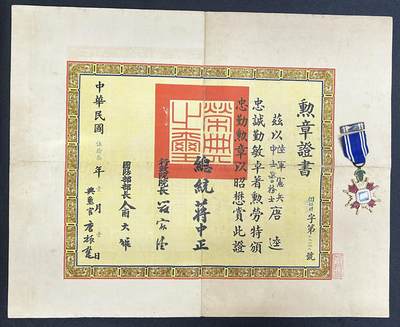 勳章證書
茲以陸軍
中士
唐逵
忠誠勤敏卓著勲勞特頒
忠勤勲章以昭懋賞此證
字第 號
榮典之璽
總統 蔣中正
行政院長 嚴家淦
國防部部長 俞大維
中華民國 年 月 日
典璽官